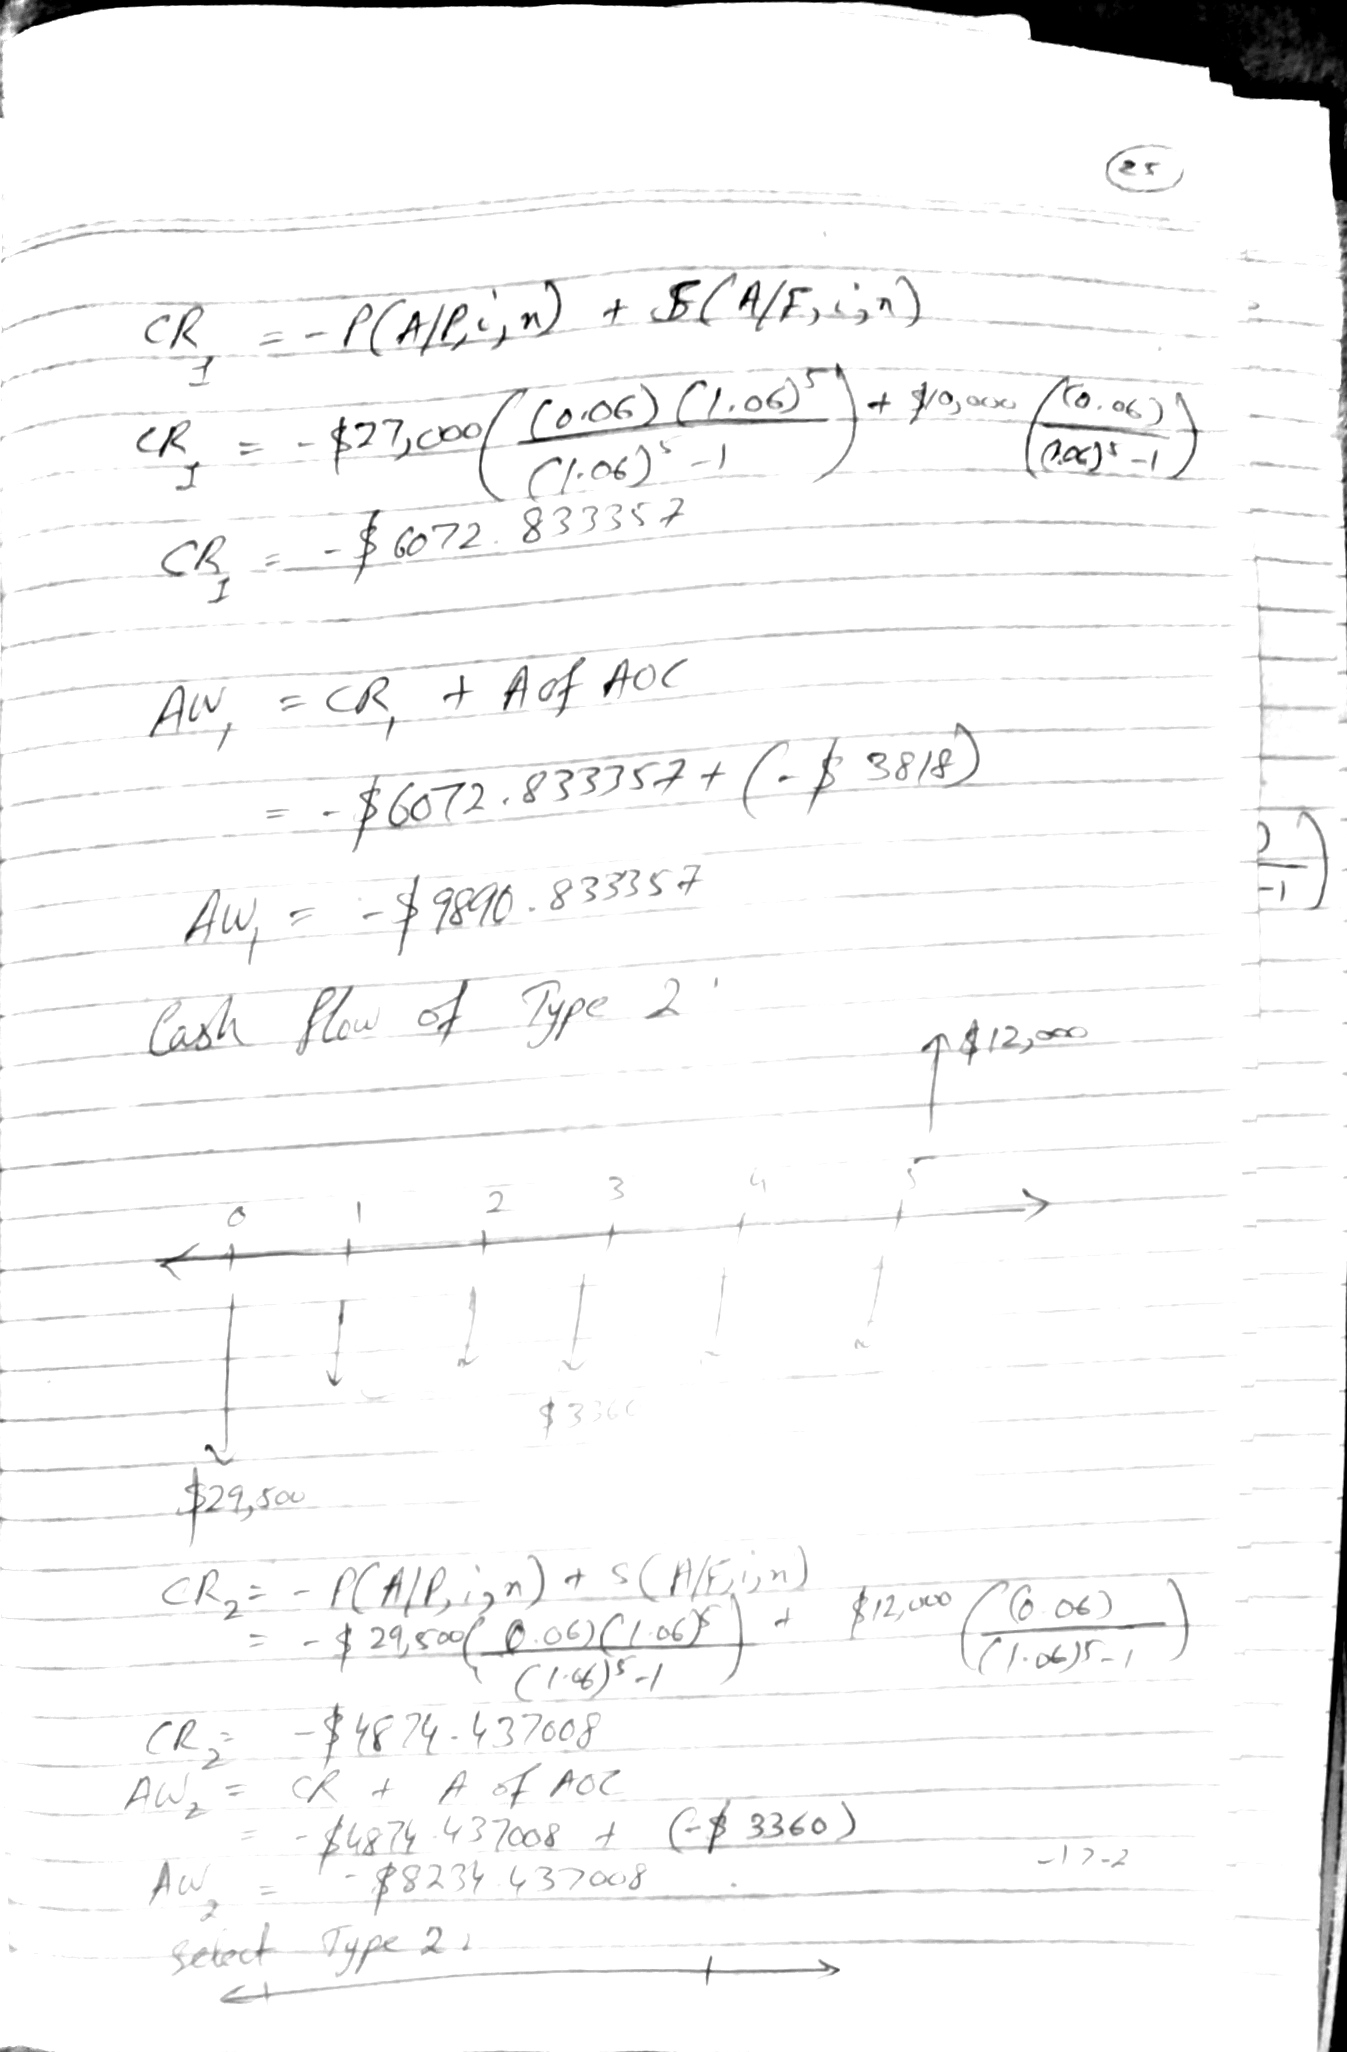 25
CR₁ = -P(A/P,i,n) + S(A/F,i,n)
CR₁ = -$27,000((0.06)(1.06)⁵/(1.06)⁵-1) + $10,000((0.06)/(1.06)⁵-1)
CR₁ = -$6072.833357
AW₁ = CR₁ + A of AOC
= -$6072.833357 + (-$3818)
AW₁ = -$9890.833357
Cash flow of Type 2
$12,000
0 1 2 3 4 5
$3360
$29,500
)
-1)
CR₂ = -P(A/P,i,n) + S(A/F,i,n)
= -$29,500((0.06)(1.06)⁵/(1.06)⁵-1) + $12,000((0.06)/(1.06)⁵-1)
CR₂ = -$4874.437008
AW₂ = CR + A of AOC
= -$4874.437008 + (-$3360)
-1>-2
AW₂ = -$8234.437008
Select Type 2.